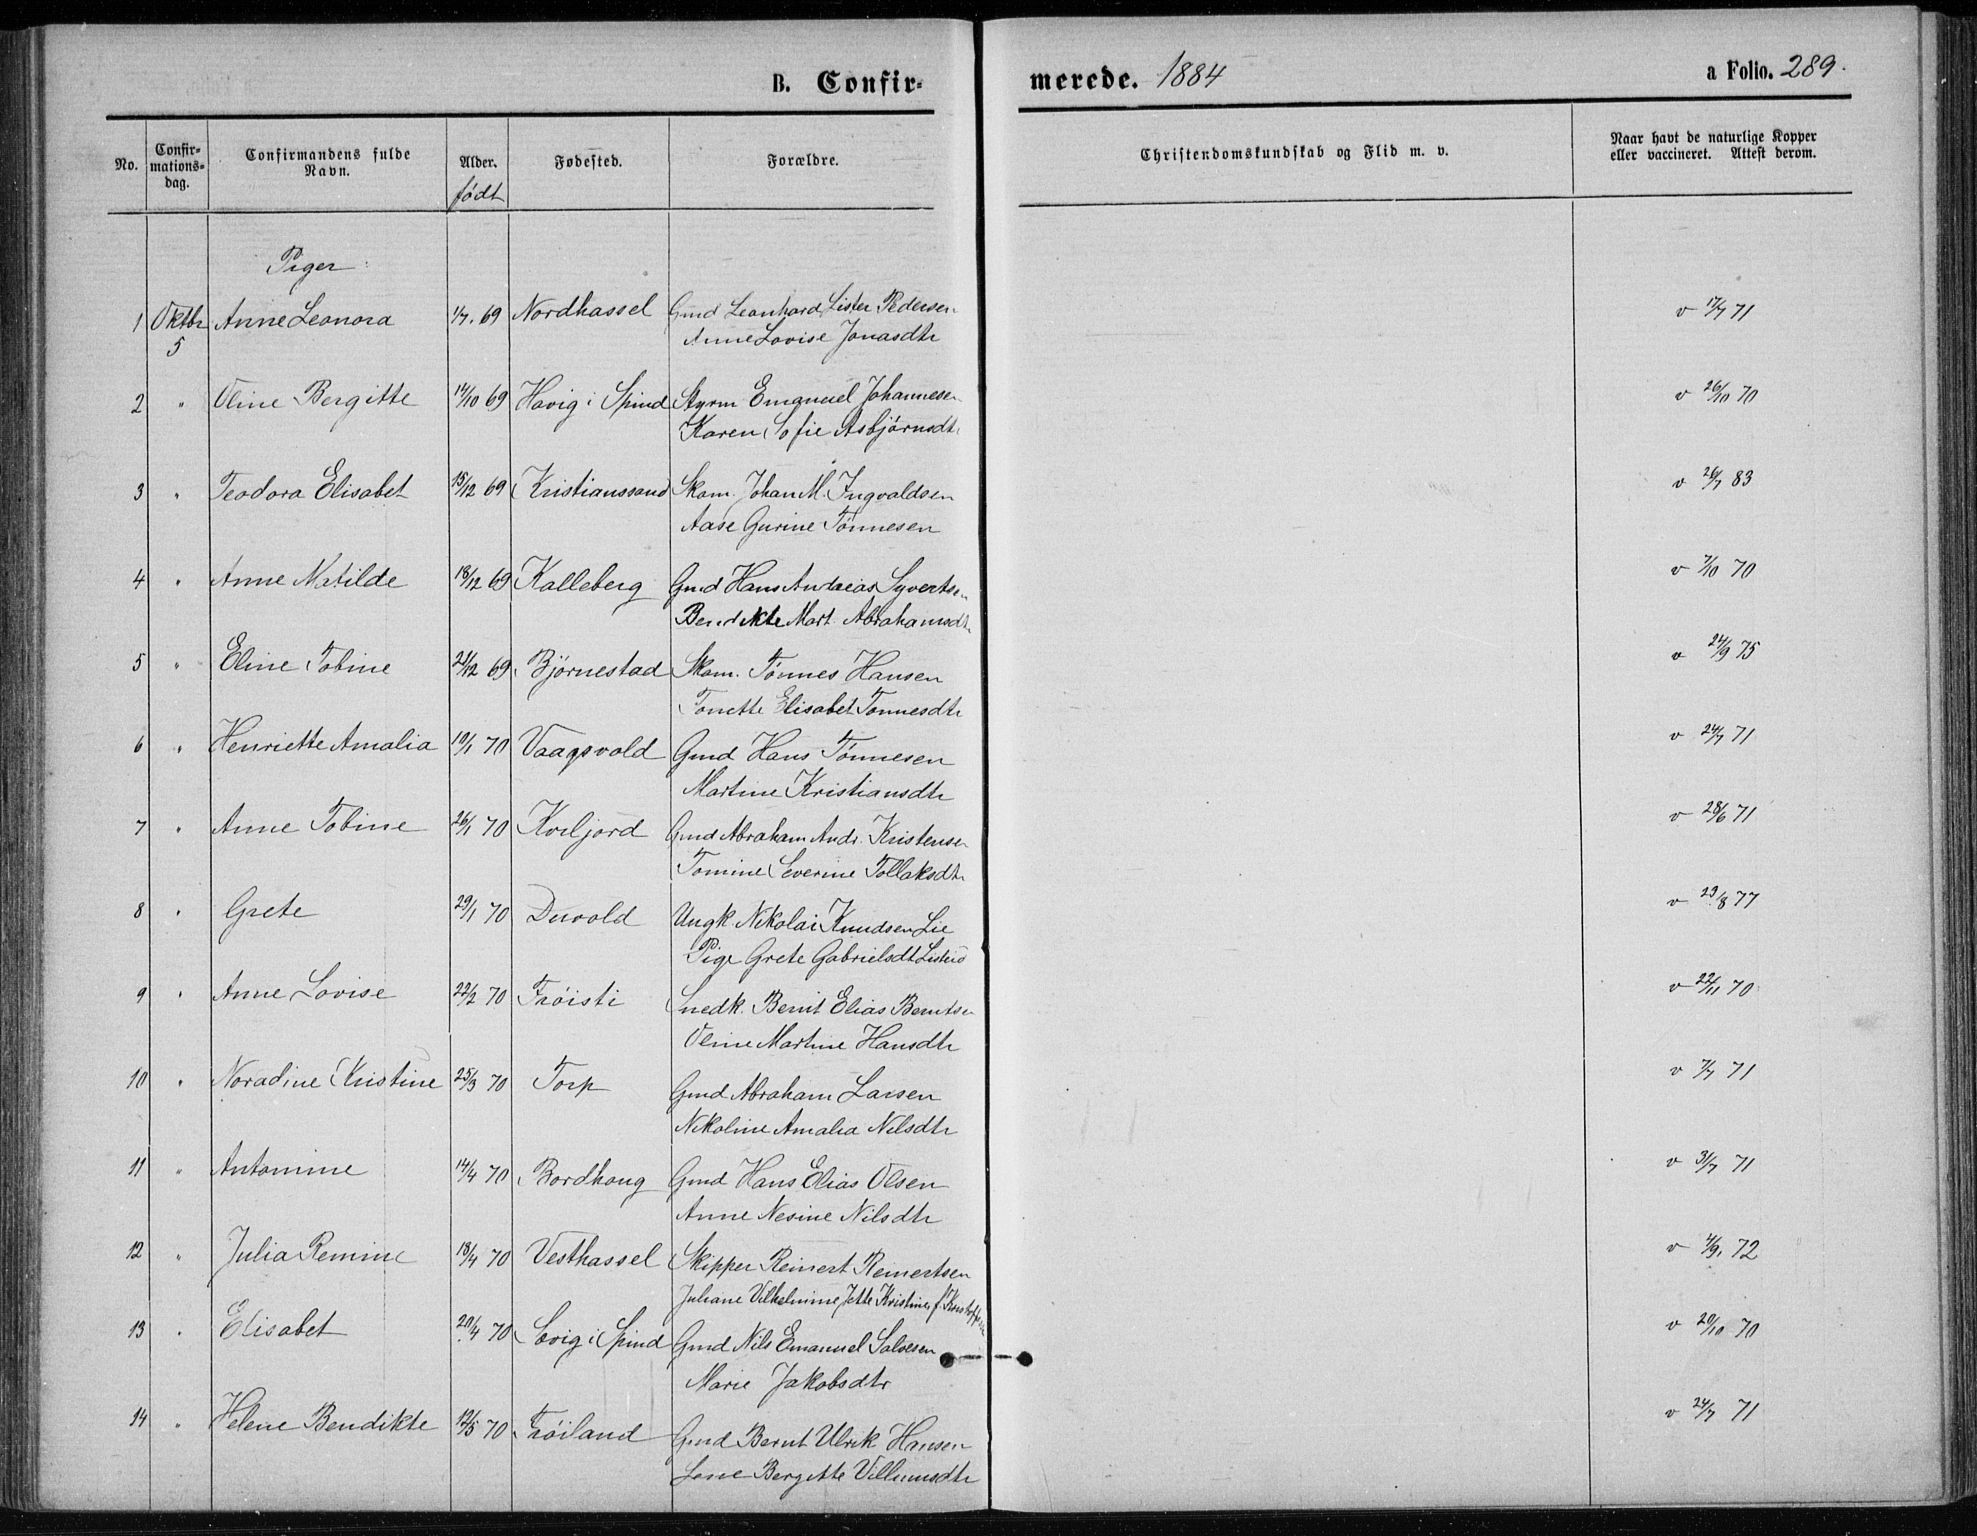 B. Confir-
merede. 1884
a Folio. 289.
No.
Confir-
mations-
dag.
Confirmandens fulde
Navn.
Alder.
født
Fødested.
Forældre.
Christendomskundskab og Flid m. v.
Naar havt de naturlige Kopper
eller vaccineret. Attest derom.
Piger
1 Oktbr Anne Leonora 1/7. 69 Nordhassel Gmd Leonhard Lister Pedersen v 17/7 71
5 Anne Lovise Jonasdtr
2 " Oline Bergitte 14/10 69 Havig i Spind Styrm Emanuel Johannesen v 26/10 70
Karen Sofie Asbjörnsdt
3 " Teodora Elisabet 15/12 69 Kristianssand Skom. Johan M. Ingvaldsen v 26/7 83
Aase Gurine Tönnesen
4 " Anne Matilde 18/12 69 Kalleberg Gmd Hans Andreas Syvertsen v 7/10 70
Bendikte Mart. Abrahamsdtr
5 " Eline Tobine 21/12 69 Björnestad Skom. Tønnes Hansen v 24/9 75
Tonette Elisabet Tønnesdtr
6 " Henriette Amalia 19/1 70 Vaagsvold Gmd Hans Tönnesen v 24/7 71
Martine Kristiansdtr
7 " Anne Tobine 26/1 70 Kviljord Gmd Abraham Andr. Kristensen v 28/6 71
Tomine Severine Tollaksdtr
8 " Grete 29/1 70 Duvold Ungk. Nikolai Knudsen Lie v 23/8 77
Pige Grete Gabrielsdt
9 " Anne Lovise 22/2 70 Tröisti Snedk. Bernt Elias Berntsen v 22/11 70
Oline Martine Hansdtr
10 " Noradine Kristine 25/3 70 Torp Gmd Abraham Larsen v 7/7 71
Nikoline Amalia Nilsdtr
11 " Antomine 14/4 70 Bordhoug Gmd Hans Elias Olsen v 31/7 71
Anne Nesine Nilsdtr
12 " Julia Remine 18/4 70 Vesthassel Skipper Reinert Reinertsen v 4/9. 72
Juliane Vilhelmine Jette Kristine f.
13 " Elisabet 20/4 70 Lovig i Spind Gmd Nils Emanuel Salvesen v 20/10 70
Marie Jakobsdtr
14 " Helene Bendikte 12/5 70 Tröiland Gmd Bernt Ulrik Hansen v 24/7 71
Lone Bergitte Villumsdtr